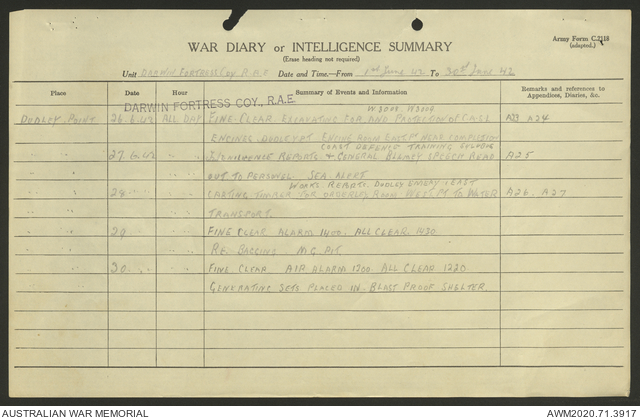 Army Form C.2118
(adapted.)
WAR DIARY or INTELLIGENCE SUMMARY
(Erase heading not required)
Unit DARWIN FORTRESS COY R.A.E Date and Time.—From 1st June 42 To 30th June 42
Place Date Hour Summary of Events and Information Remarks and references to Appendices, Diaries, &c.
DARWIN FORTRESS COY., R.A.E.
W3008 W3009
DUDLEY POINT 26.6.42 ALL DAY FINE CLEAR EXCAVATING FOR AND PROTECTION OF C.A.S.L A23 A24
ENGINES. DUDLEY PT ENGINE ROOM EAST PT NEAR COMPLETION
COAST DEFENCE TRAINING SYLLABUS
" " 27.6.42 REPORTS & GENERAL BLAMEY SPEECH READ A25
OUT TO PERSONEL. SEA ALERT
WORKS REPORTS. DUDLEY EAST
" " 28 CARTING TIMBER FOR ROOM WEST PT TO WATER A26 A27
TRANSPORT.
" " 29 FINE CLEAR ALARM 1400. ALL CLEAR. 1430
RE BAGGING M.G. PIT.
" " 30 FINE CLEAR AIR ALARM 1200 ALL CLEAR 1220
GENERATING SETS PLACED IN BLAST PROOF SHELTER
AUSTRALIAN WAR MEMORIAL
AWM2020.71.3917